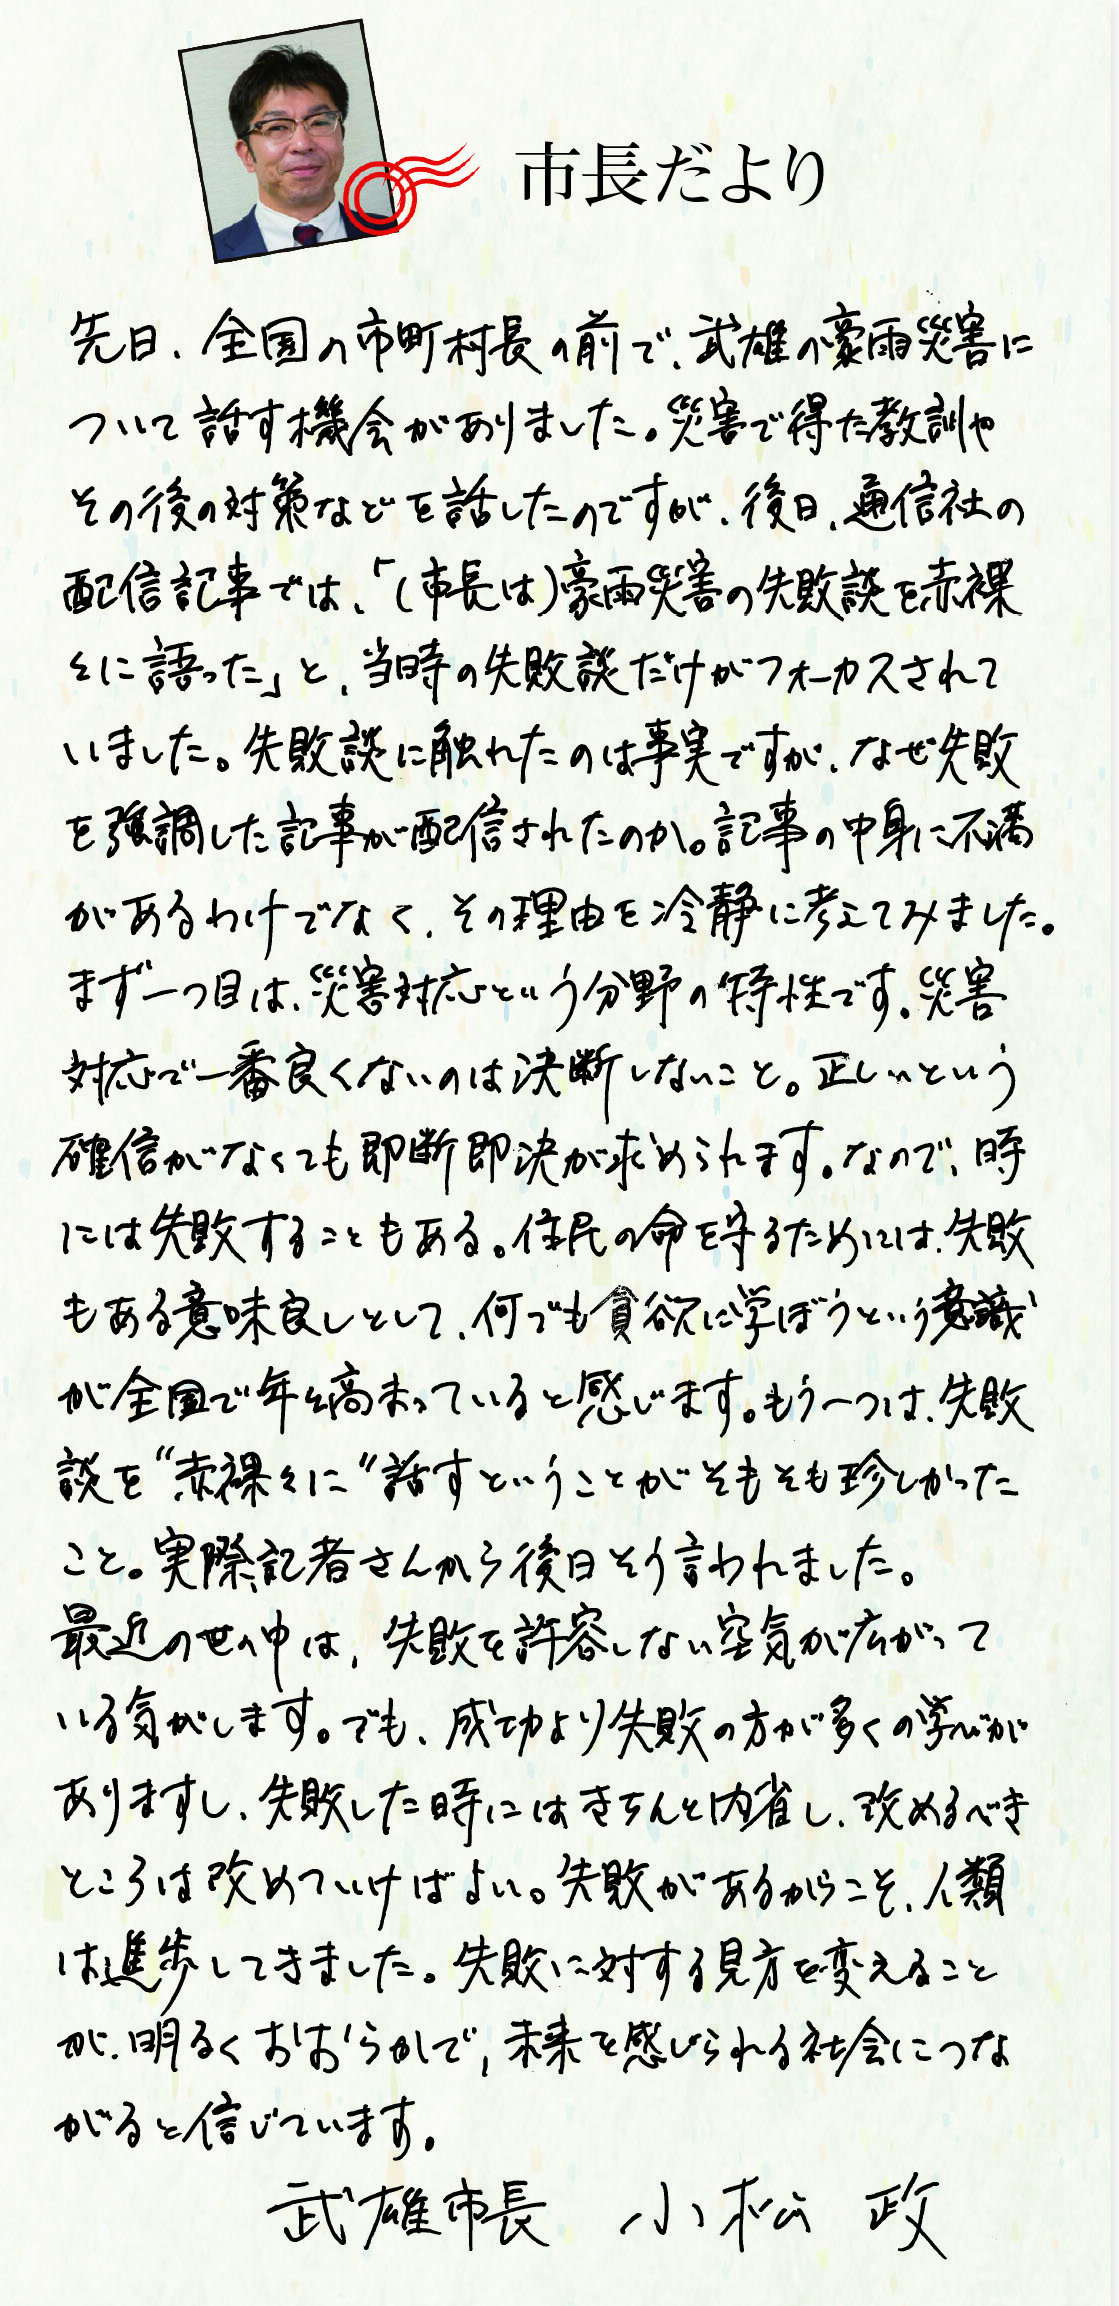 市長だより
先日、全国の市町村長の前で、武雄の豪雨災害に
ついて話す機会がありました。災害で得た教訓や
その後の対策などを話したのですが、後日、通信社の
配信記事では、「(市長は)豪雨災害の失敗談を赤裸
々に語った」と、当時の失敗談だけがフォーカスされて
いました。失敗談に触れたのは事実ですが、なぜ失敗
を強調した記事が配信されたのか。記事の中身に不満
があるわけでなく、その理由を冷静に考えてみました。
まず一つ目は、災害対応という分野の特性です。災害
対応で一番良くないのは決断しないこと。正しいという
確信がなくても即断即決が求められます。なので、時
には失敗することもある。住民の命を守るためには、失敗
もある意味良しとして、何でも貪欲に学ぼうという意識
が全国で年々高まっていると感じます。もう一つは、失敗
談を“赤裸々に”話すということがそもそも珍しかった
こと。実際、記者さんから後日そう言われました。
最近の世の中は、失敗を許容しない空気が広がって
いる気がします。でも、成功より失敗の方が多くの学びが
ありますし、失敗した時にはきちんと内省し、改めるべき
ところは改めていけばよい。失敗があるからこそ、人類
は進歩してきました。失敗に対する見方を変えること
が、明るくおおらかで、未来を感じられる社会につな
がると信じています。
武雄市長 小松 政